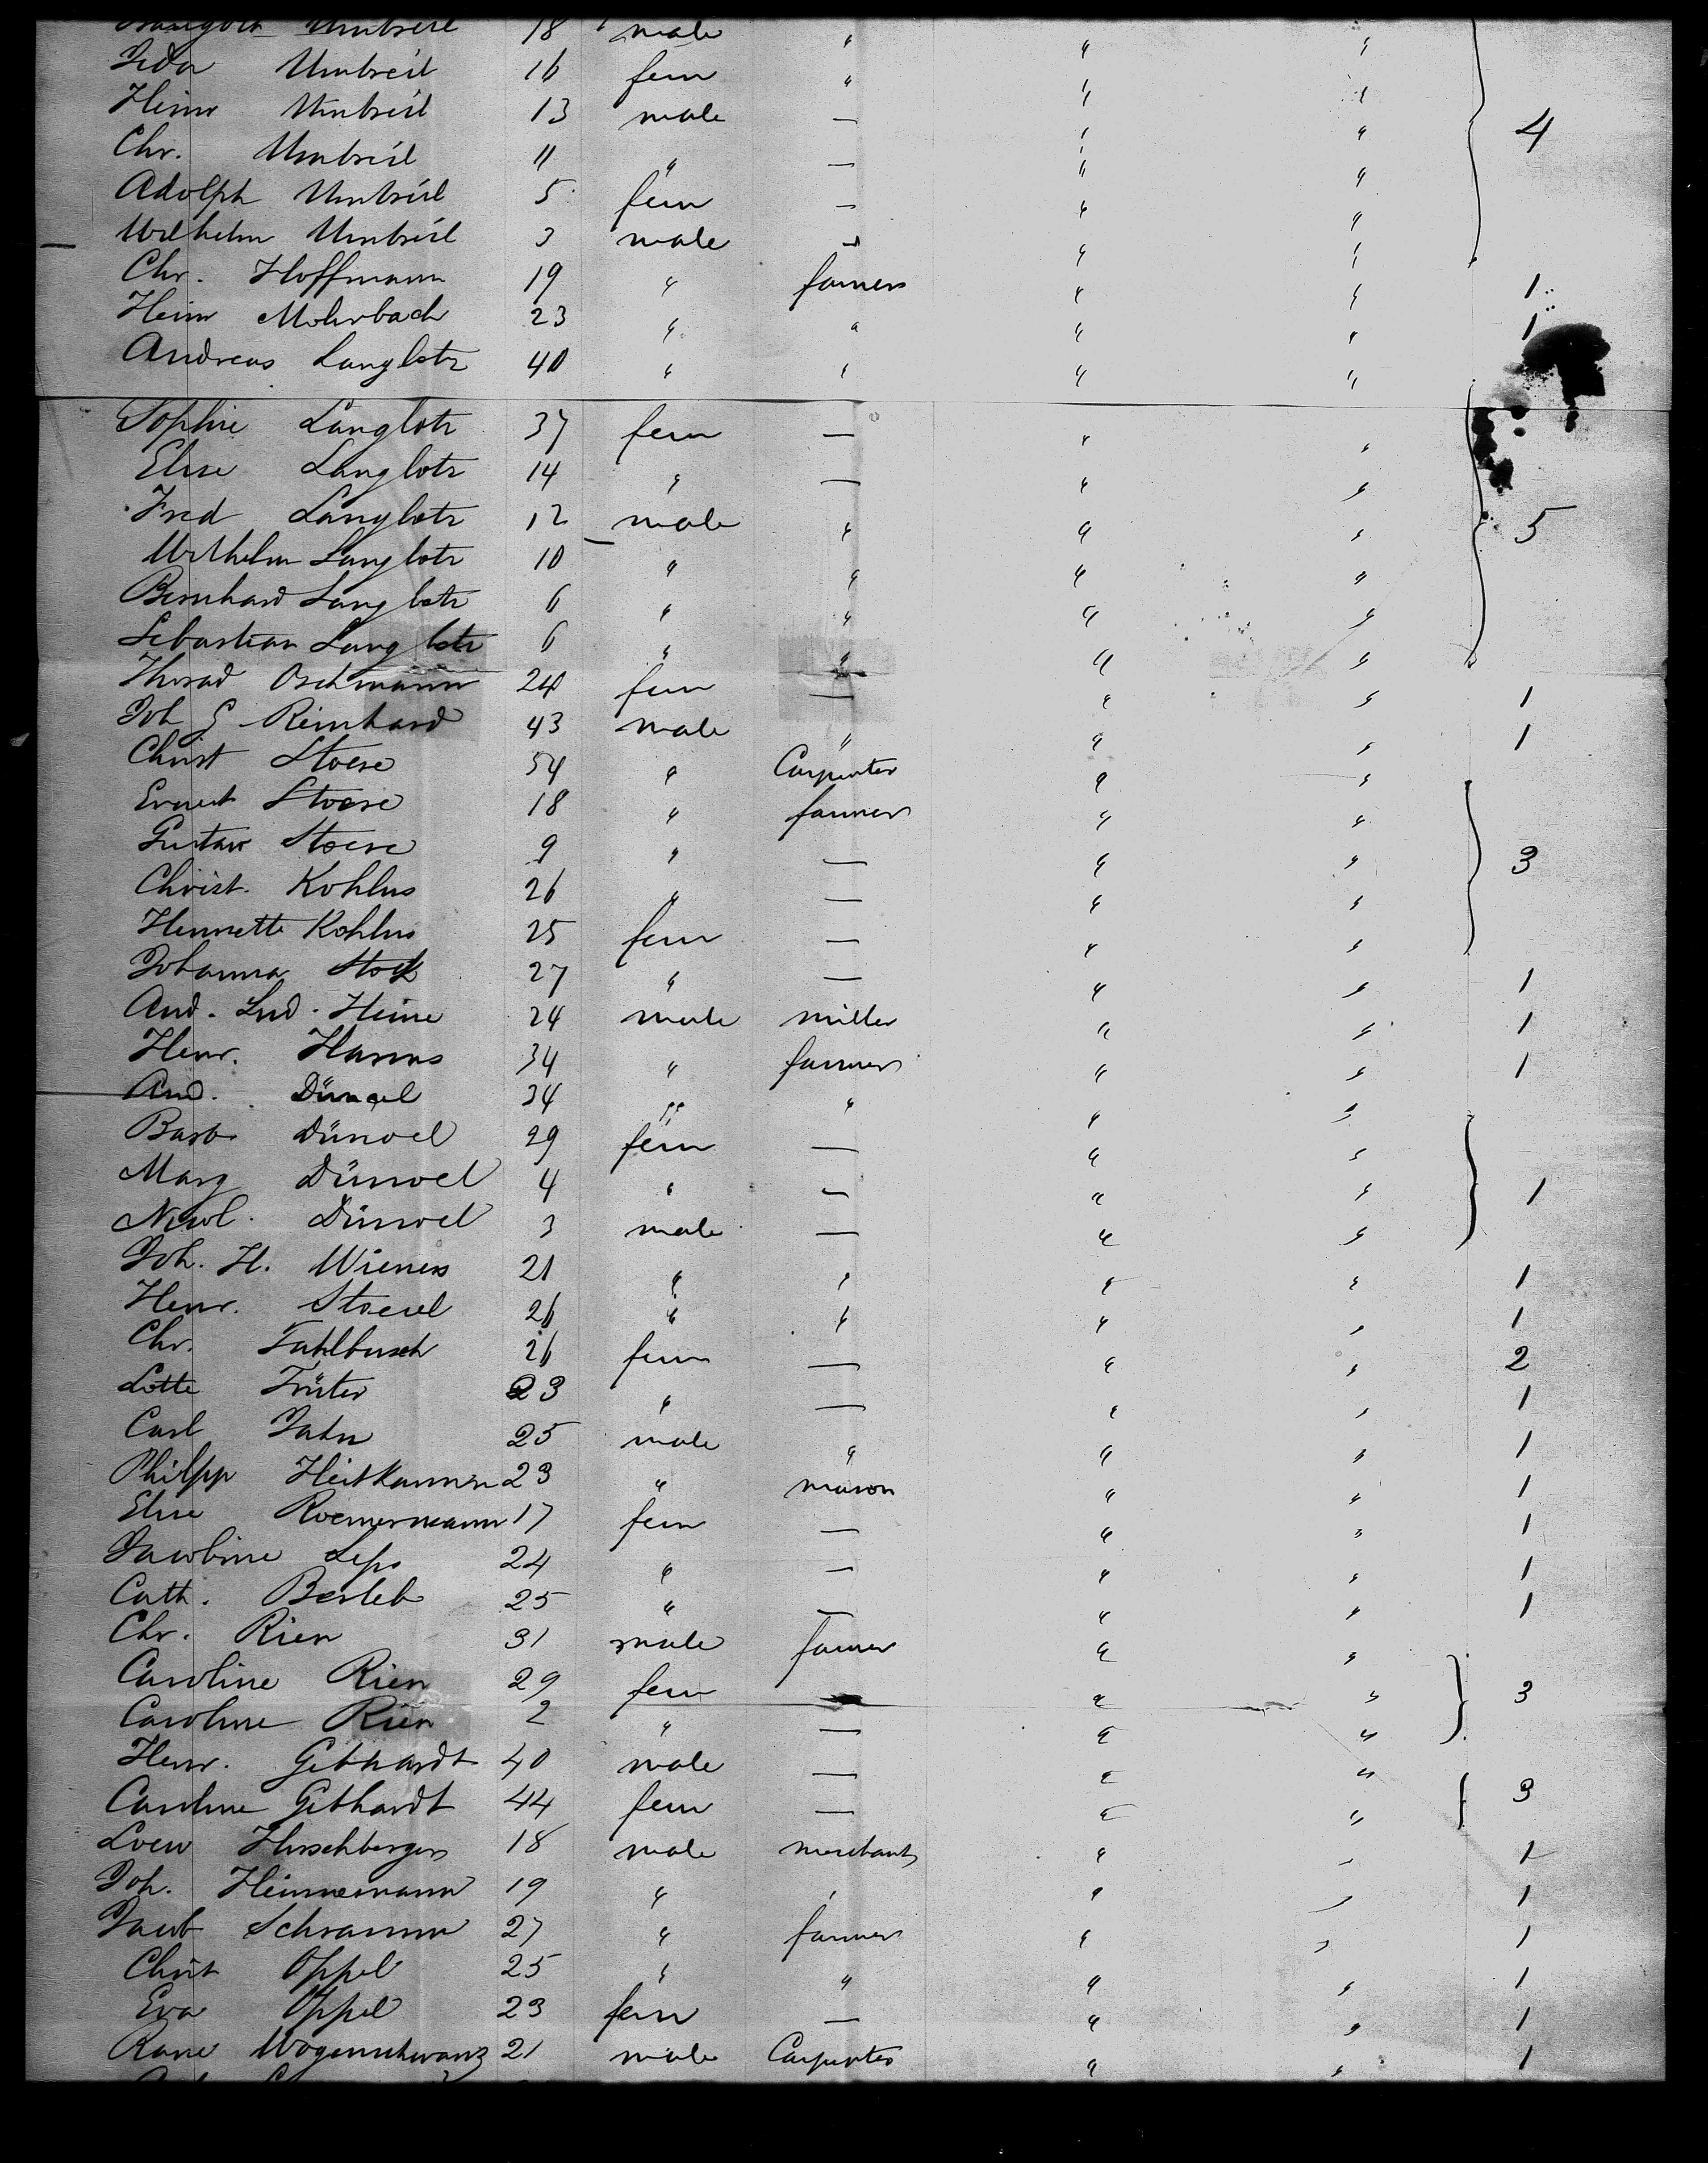 Umbreit 18 male " " "
Ida Umbreit 16 fem " " "
Heinr Umbreit 13 male — " " 4
Chr. Umbreit 11 " — " "
Adolph Umbreit 5 fem — " "
Wilhelm Umbreit 3 male — " "
Chr. Hoffmann 19 " farmer " " 1
Heinr Mohrbach 23 " " " " 1
Andreas Langlotz 40 " " " "
Sophie Langlotz 37 fem — " "
Elise Langlotz 14 " — " "
Fred Langlotz 12 male " " " 5
Wilhelm Langlotz 10 " " " "
Bernhard Langlotz 6 " " " "
Sebastian Langlotz 6 " " " "
Oschmann 24 fem — " " 1
Joh G Reinhard 43 male " " " 1
Christ Stoese 54 " Carpenter " "
Ernest Stoese 18 " farmer " "
Gustav Stoese 9 " — " " 3
Christ. Kohlus 26 " — " "
Henrette Kohlus 25 fem — " "
Johanna 27 " — " " 1
And. Lud. Heine 24 male miller " " 1
Henr. Harms 34 " farmer " " 1
And. 34 " " " "
Barb. Dünvel 29 fem — " "
Marg Dünvel 4 " — " " 1
Dünvel 3 male — " "
Joh. H. Wieners 21 " " " " 1
Henr. 26 " " " " 1
Chr. Fahlbusch 26 fem — " " 2
Lotte Früter 23 " — " " 1
Carl Jahn 25 male " " " 1
Philipp Heitkamm 23 " mason " " 1
Elise Roemermann 17 fem — " " 1
Jacobine Leps 24 " — " " 1
Cath. Berleb 25 " — " " 1
Chr. Rien 31 male farmer " "
Caroline Rien 29 fem — " " 3
Caroline Rien 2 " — " "
Henr. Gebhardt 40 male — " "
Caroline Gebhardt 44 fem — " " 3
Loew Hirschberger 18 male merchant " " 1
Joh. Heinnemann 19 " " " " 1
Jacob Schramm 27 " farmer " " 1
Christ Oppel 25 " " " " 1
Eva Oppel 23 fem — " " 1
Wagenschwanz 21 male Carpenter " " 1